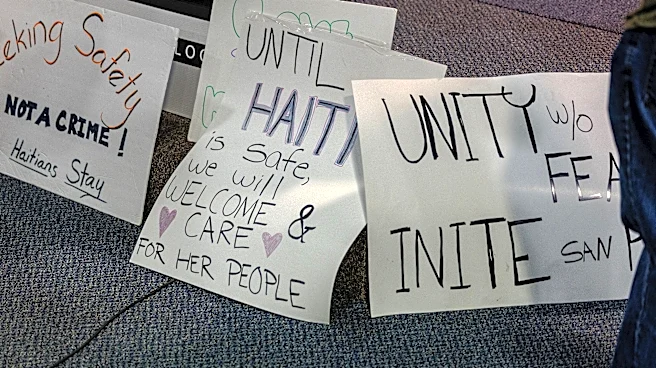 Seeking Safety
NOT A CRIME!
Haitians Stay
UNTIL
HAITI
is safe,
we will
WELCOME &
CARE
FOR HER PEOPLE
UNITY w/o
INITE SAN